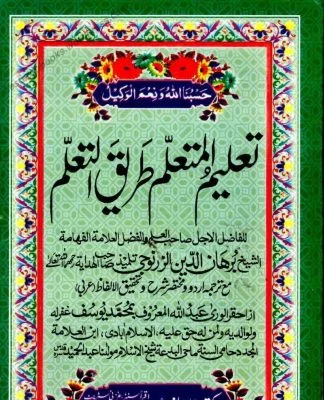 حَسْبُنَا اللهُ وَنِعْمَ الْوَكِيْل
تعلیم المتعلم طریق التعلم
للفاضل الاجل صاحب العلم والفضل العلامة الفهامة
الشیخ برهان الدین الزرنوجی تلمیذ صاحب الهدایة
مع ترجمه اردو و مختصر شرح و تحقیق الالفاظ (عربی)
از احقر الوری عبد الله المعروف بمحمد یوسف غفرله
ولوالدیه ولمن له حق علیه، الاسلام آبادی، ابن العلامة
المجدد حامی السنة ماحی البدعة شیخ الاسلام مولانا عبد الحمید